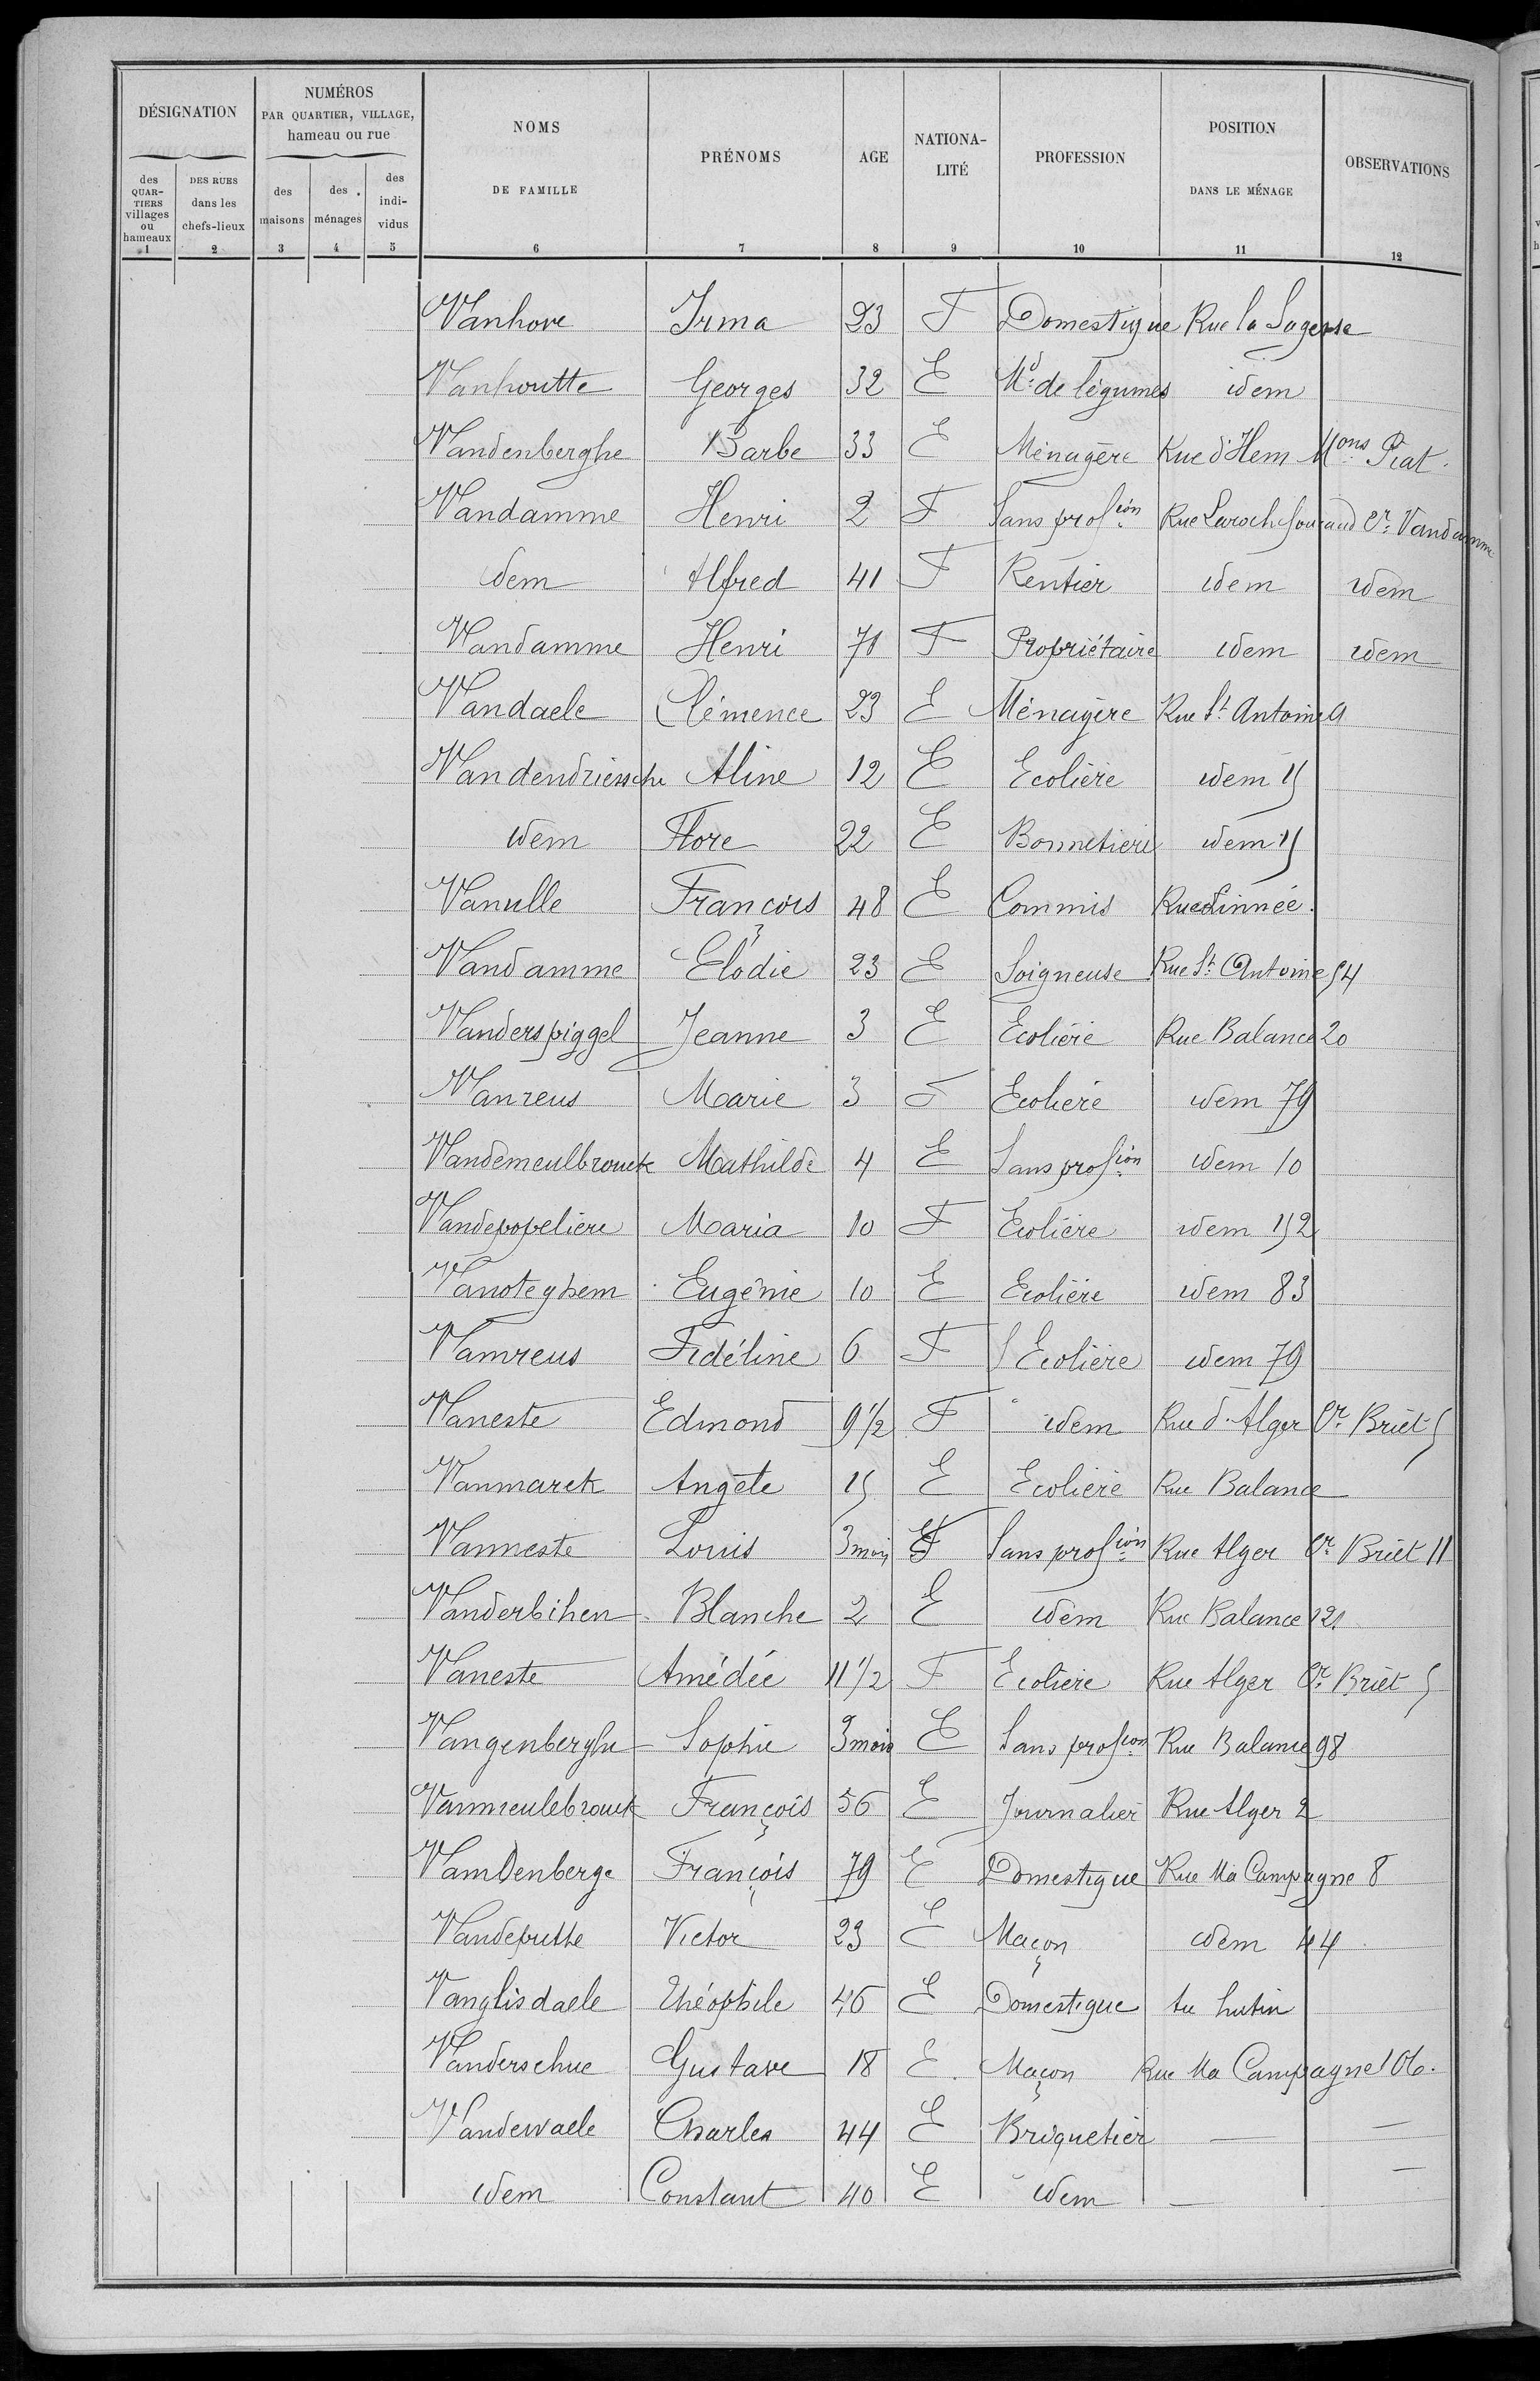 DÉSIGNATION NUMÉROS PAR QUARTIER, VILLAGE, hameau ou rue NOMS DE FAMILLE PRÉNOMS AGE NATIONA-LITÉ PROFESSION POSITION DANS LE MÉNAGE OBSERVATIONS
des QUARTIERS villages ou hameaux DES RUES dans les chefs-lieux des maisons des ménages des indi-vidus
1 2 3 4 5 6 7 8 9 10 11 12
Vanhove Irma 23 F Domestique Rue la Sagesse
Vanhoutte Georges 32 E Md de légumes idem
Vandenberghe Barbe 33 E Ménagère Rue d'Hem Mons Piat
Vandamme Henri 2 F Sans profion Rue Larochefoucaud Cr Vandamme
idem Alfred 41 F Rentier idem idem
Vandamme Henri 71 F Propriétaire idem idem
Vandaele Clémence 23 E Ménagère Rue St Antoine 9
Vandendriessche Aline 12 E Ecolière idem 15
idem Flore 22 E Bonnetière idem 15
Vanulle François 48 E Commis Rue Linnée
Vandamme Elodie 23 E Soigneuse Rue St Antoine 54
Vanderspiggel Jeanne 3 E Ecolière Rue Balance 20
Vanreus Marie 3 F Ecolière idem 79
Vandemeulbrouck Mathilde 4 E Sans profion idem 10
Vandepopeliere Maria 10 F Ecolière idem 152
Vanoteghem Eugénie 10 E Ecolière idem 83
Vamreus Fidéline 6 F Ecolière idem 79
Vaneste Edmond 9 1/2 F idem Rue d'Alger Cr Briet 5
Vanmarck Angèle 15 E Ecolière Rue Balance
Vanneste Louis 3 mois F Sans profion Rue Alger Cr Briet 11
Vanderbihen Blanche 2 E idem Rue Balance 121
Vaneste Amédée 11 1/2 F Ecolière Rue Alger Cr Briet 5
Vangenberghe Sophie 3 mois E Sans profion Rue Balance 98
Vanmeulebrouck François 56 E Journalier Rue Alger 2
Vamdenberge François 79 E Domestique Rue Ma Campagne 8
Vandeputte Victor 23 E Maçon idem 44
Vanglisdaele Théophile 46 E Domestique au hutin
Vanderschue Gustave 18 E. Maçon Rue Ma Campagne 106.
Vandewaele Charles 44 E Briquetier — —
idem Constant 40 E idem — —